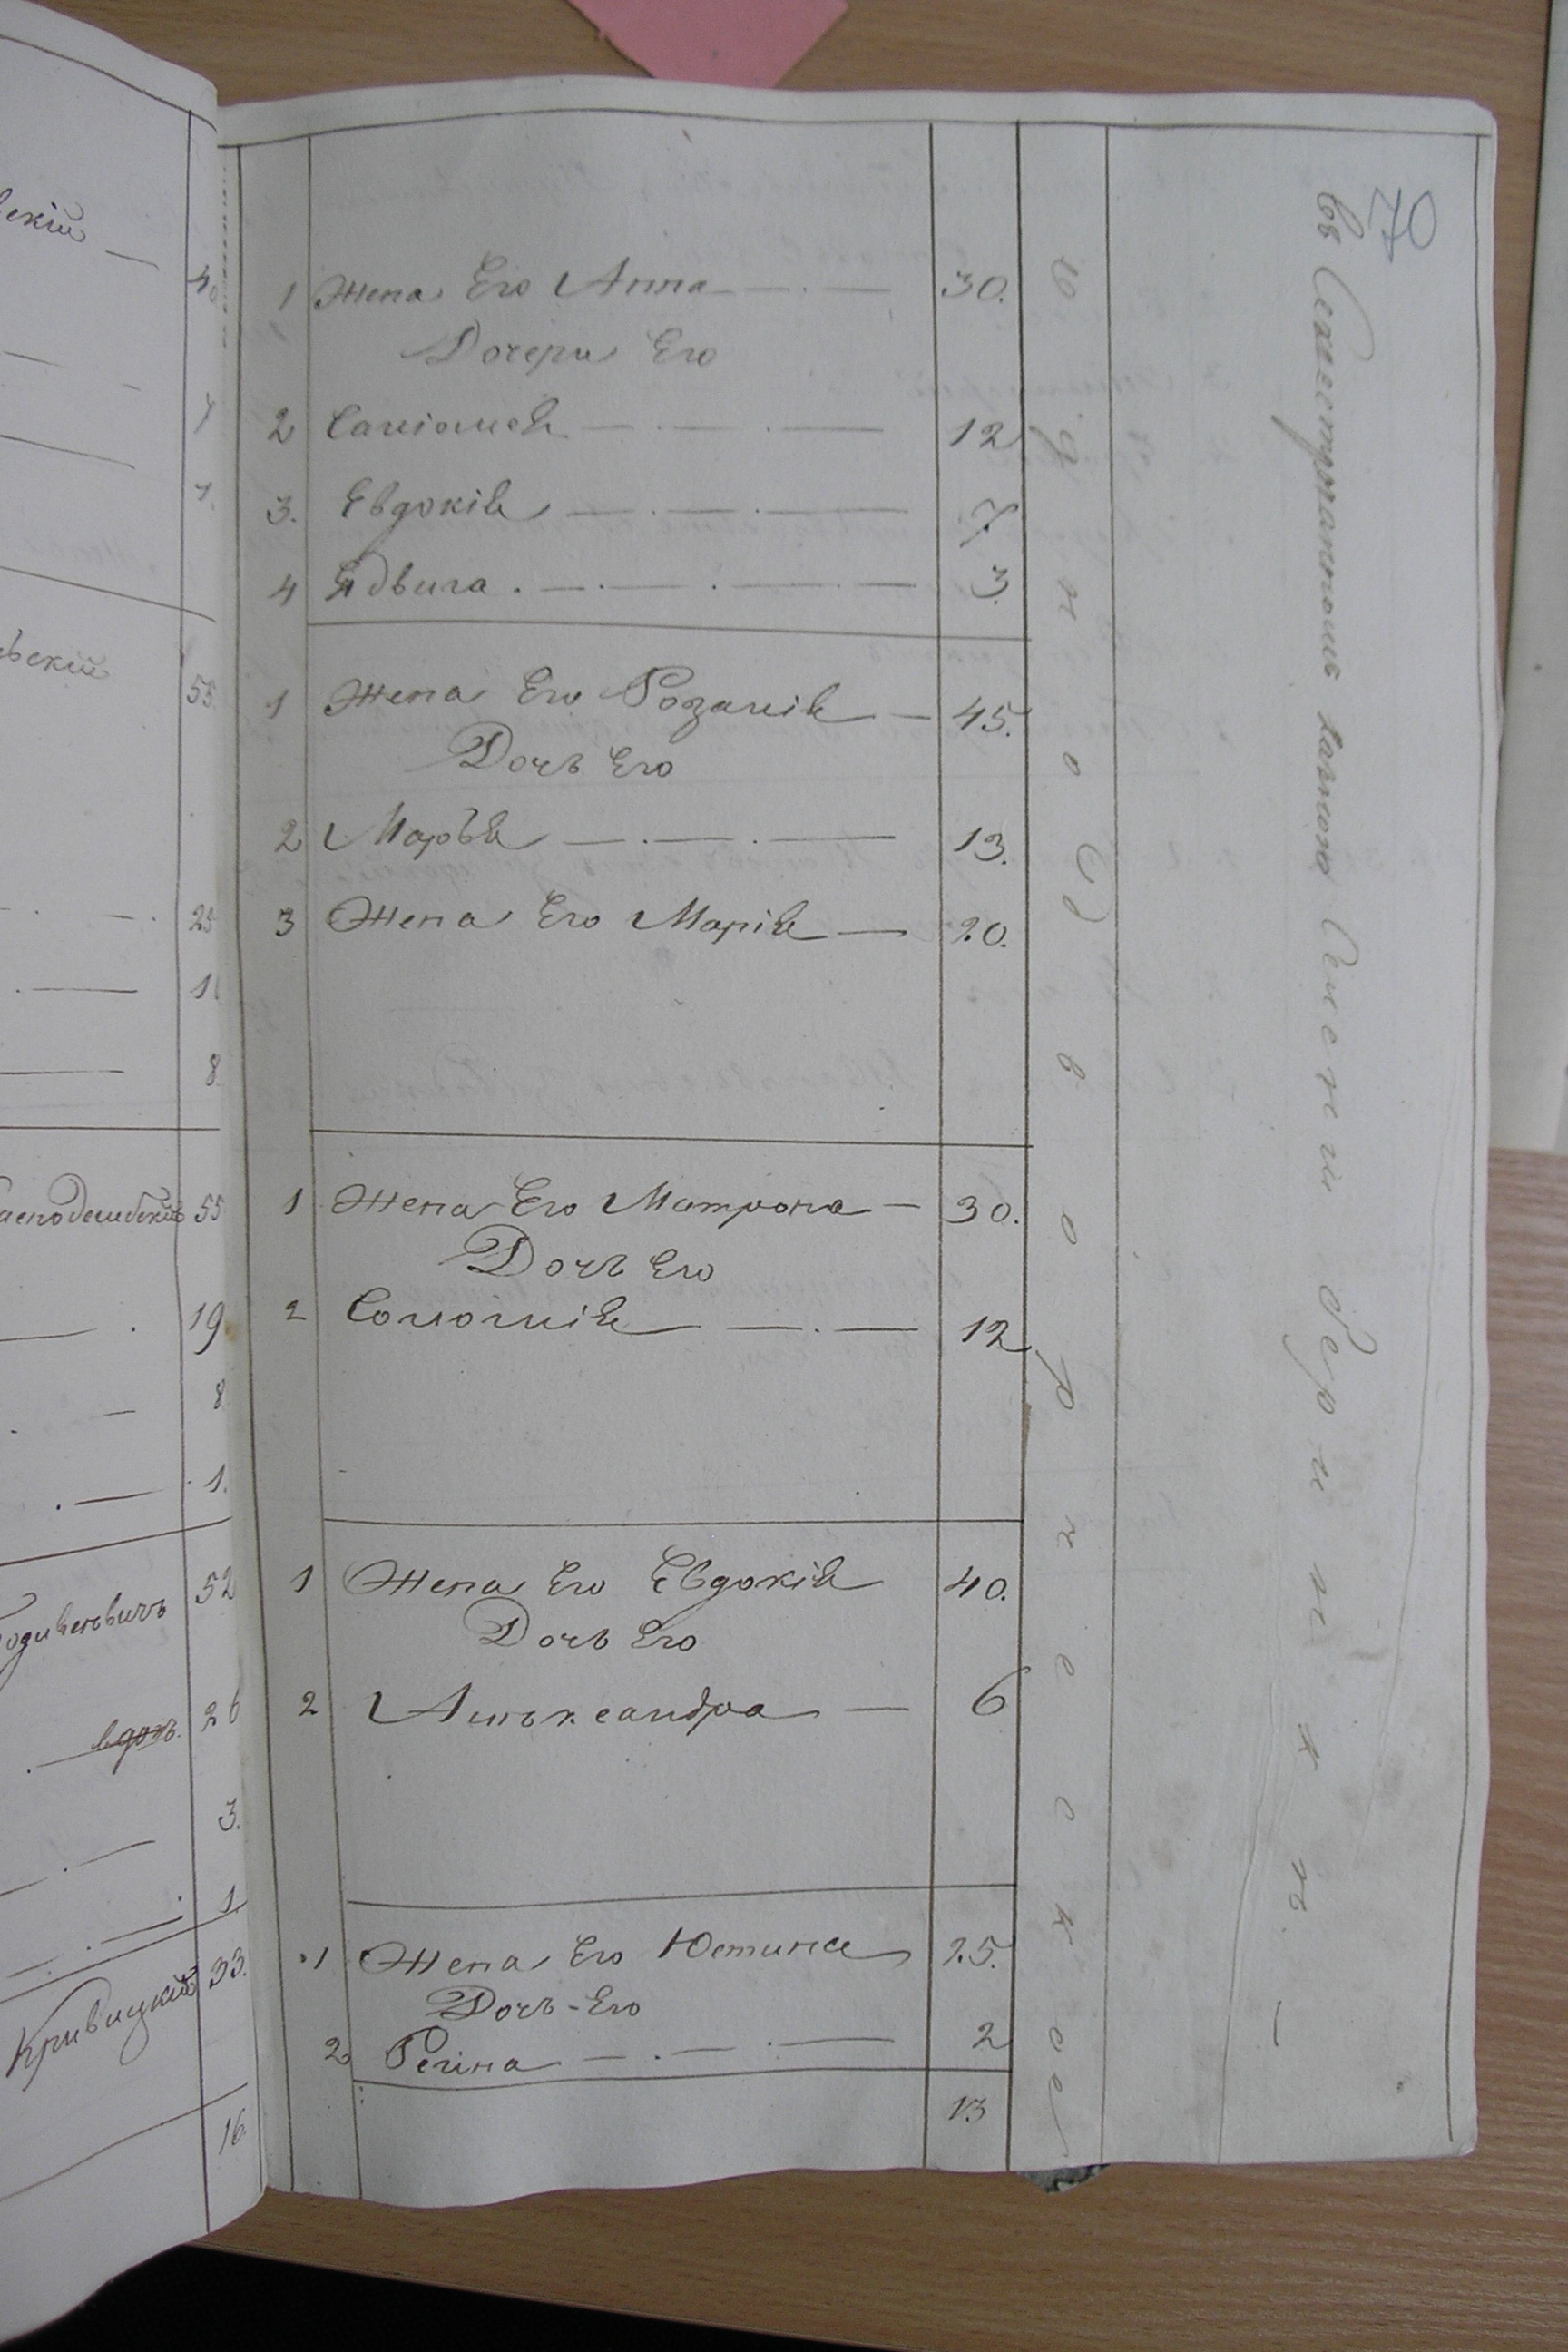 70
скій — 40
7
1.
вскій 55.
25
11
8.
55
19
8
1.
52
вдов. 26
3.
1
Кривицкій 33.
16.
1 Жена Его Анна — . — 30.
Дочери Его
2 Саліомея — . — . — 12
3. Евдокія — . — . — 7.
4 Ядвига . — . — . — 3.
1 Жена Его Розалія — 45.
Дочь Его
2 Марья — . — . — 13.
3 Жена Его Марія — 20.
1 Жена Его Матрона — 30.
Дочь Его
2 Соломія — . — 12
1 Жена Его Евдокія 40.
Дочь Его
2 Александра — 6
1 Жена Его Юстина 25.
Дочь Его
2 Регина — . — . — 2
13
Однодворческое
въ Секвестрованомъ казною Имении